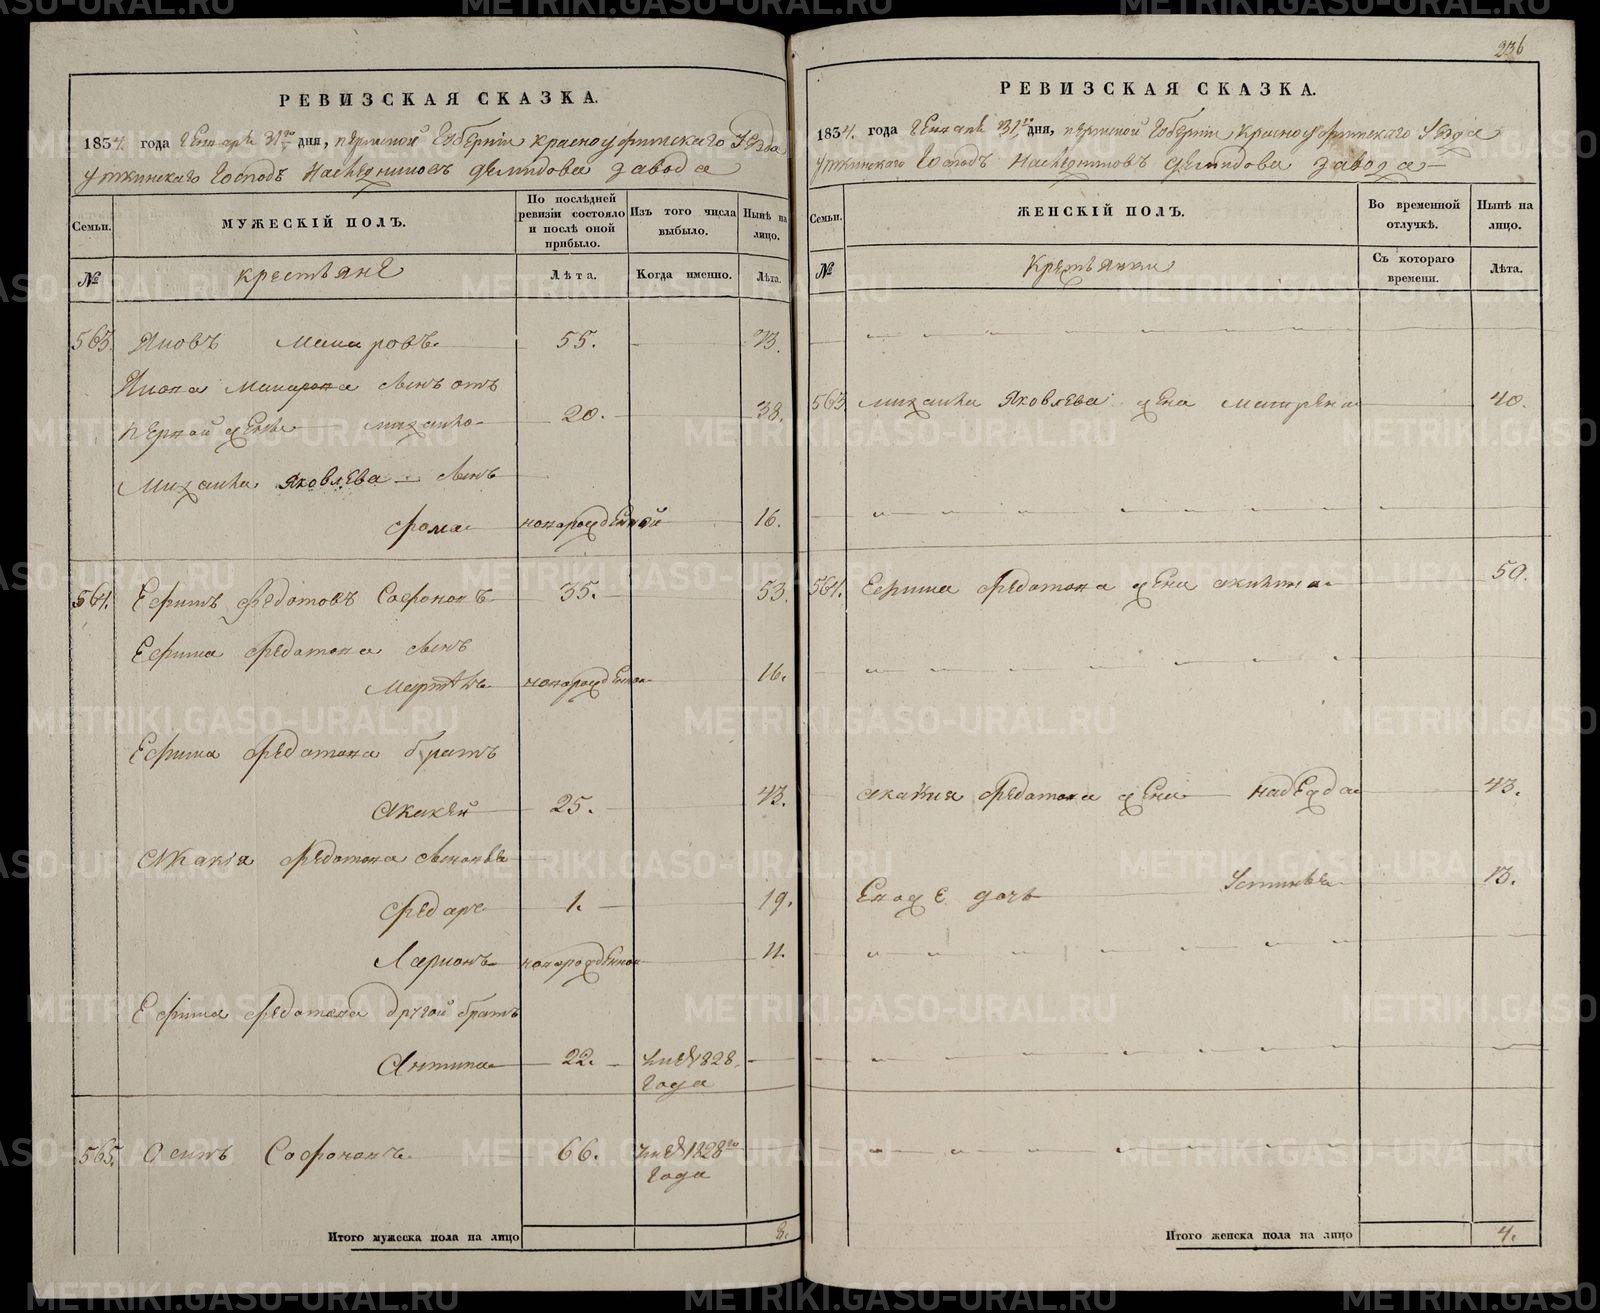 РЕВИЗСКАЯ СКАЗКА.
1834. года Генваря 31го дня, Пермской Губернии Красноуфимского Уезда
Уткинского Господъ Наследниковъ Демидова завода
Семьи.
МУЖЕСКІЙ ПОЛЪ.
По послѣдней ревизіи состояло и послѣ оной прибыло.
Изъ того числа выбыло.
Нынѣ на лицо.
№
Крестьяне
Лѣта.
Когда именно.
Лѣта.
563. Яковъ Макаровъ 55. 73.
Якова Макарова сынъ отъ
первой жены Михайло 20. 38.
Михаила Яковлева сынъ
Фома новорожденной 16.
564. Ефимъ Федотовъ Софоновъ 35. 53.
Ефима Федотова сынъ
новорожденной 16.
Ефима Федотова братъ
Акакей 25. 43.
Акакія Федотова сыновья
1. 19.
Ларионъ новорожденной 11.
Ефима Федотова другой братъ
Антипа 22. 1828
года
565. Осипъ Софоновъ 66. 1828го
года
Итого мужеска пола на лицо 8.
236
РЕВИЗСКАЯ СКАЗКА.
1834. года Генваря 31го дня, Пермской Губернии Красноуфимского Уезда
Уткинского Господъ Наследниковъ Демидова завода
Семьи.
ЖЕНСКІЙ ПОЛЪ.
Во временной отлучкѣ.
Нынѣ на лицо.
№
Крестьянки
Съ котораго времени.
Лѣта.
563 Михаила Яковлева жена Матрена 40.
564. Ефима Федотова жена Акилина 50.
Акакия Федотова жена Надежда 43.
Ея же дочь Устинья 13.
Итого женска пола на лицо 4.
METRIKI.GASO-URAL.RU